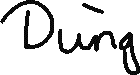 Dùng